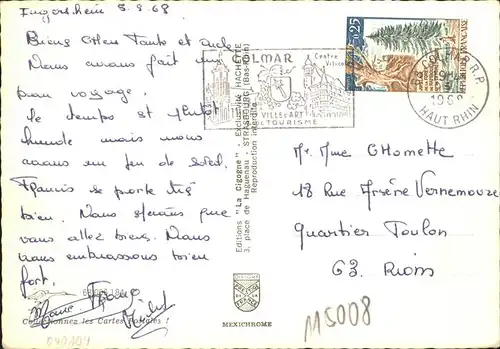 Ingersheim 8.9.68
Biens chers Tante et oncle
Nous avons fait un
bon voyage.
le temps est plutôt
humide mais nous
avons un peu de soleil.
Francis se porte très
bien. Nous espérons que
vous allez biens. Nous
vous embrassons bien
fort.
Collectionnez les Cartes Postales !
040104
Editions "La Cigogne" - Exclusivité HACHETTE
3, place de Haguenau - STRASBOURG (Bas-Rhin)
Reproduction interdite
MEXICHROME
COLMAR
Centre
VILLE D'ART
TOURISME
0,25
REPUBLIQUE FRANÇAISE
COLMAR R.P.
1968
HAUT RHIN
Mr, Mme Othomette
18 Rue Arsène Vernemouze
Quartier Toulon
63. Riom
115008